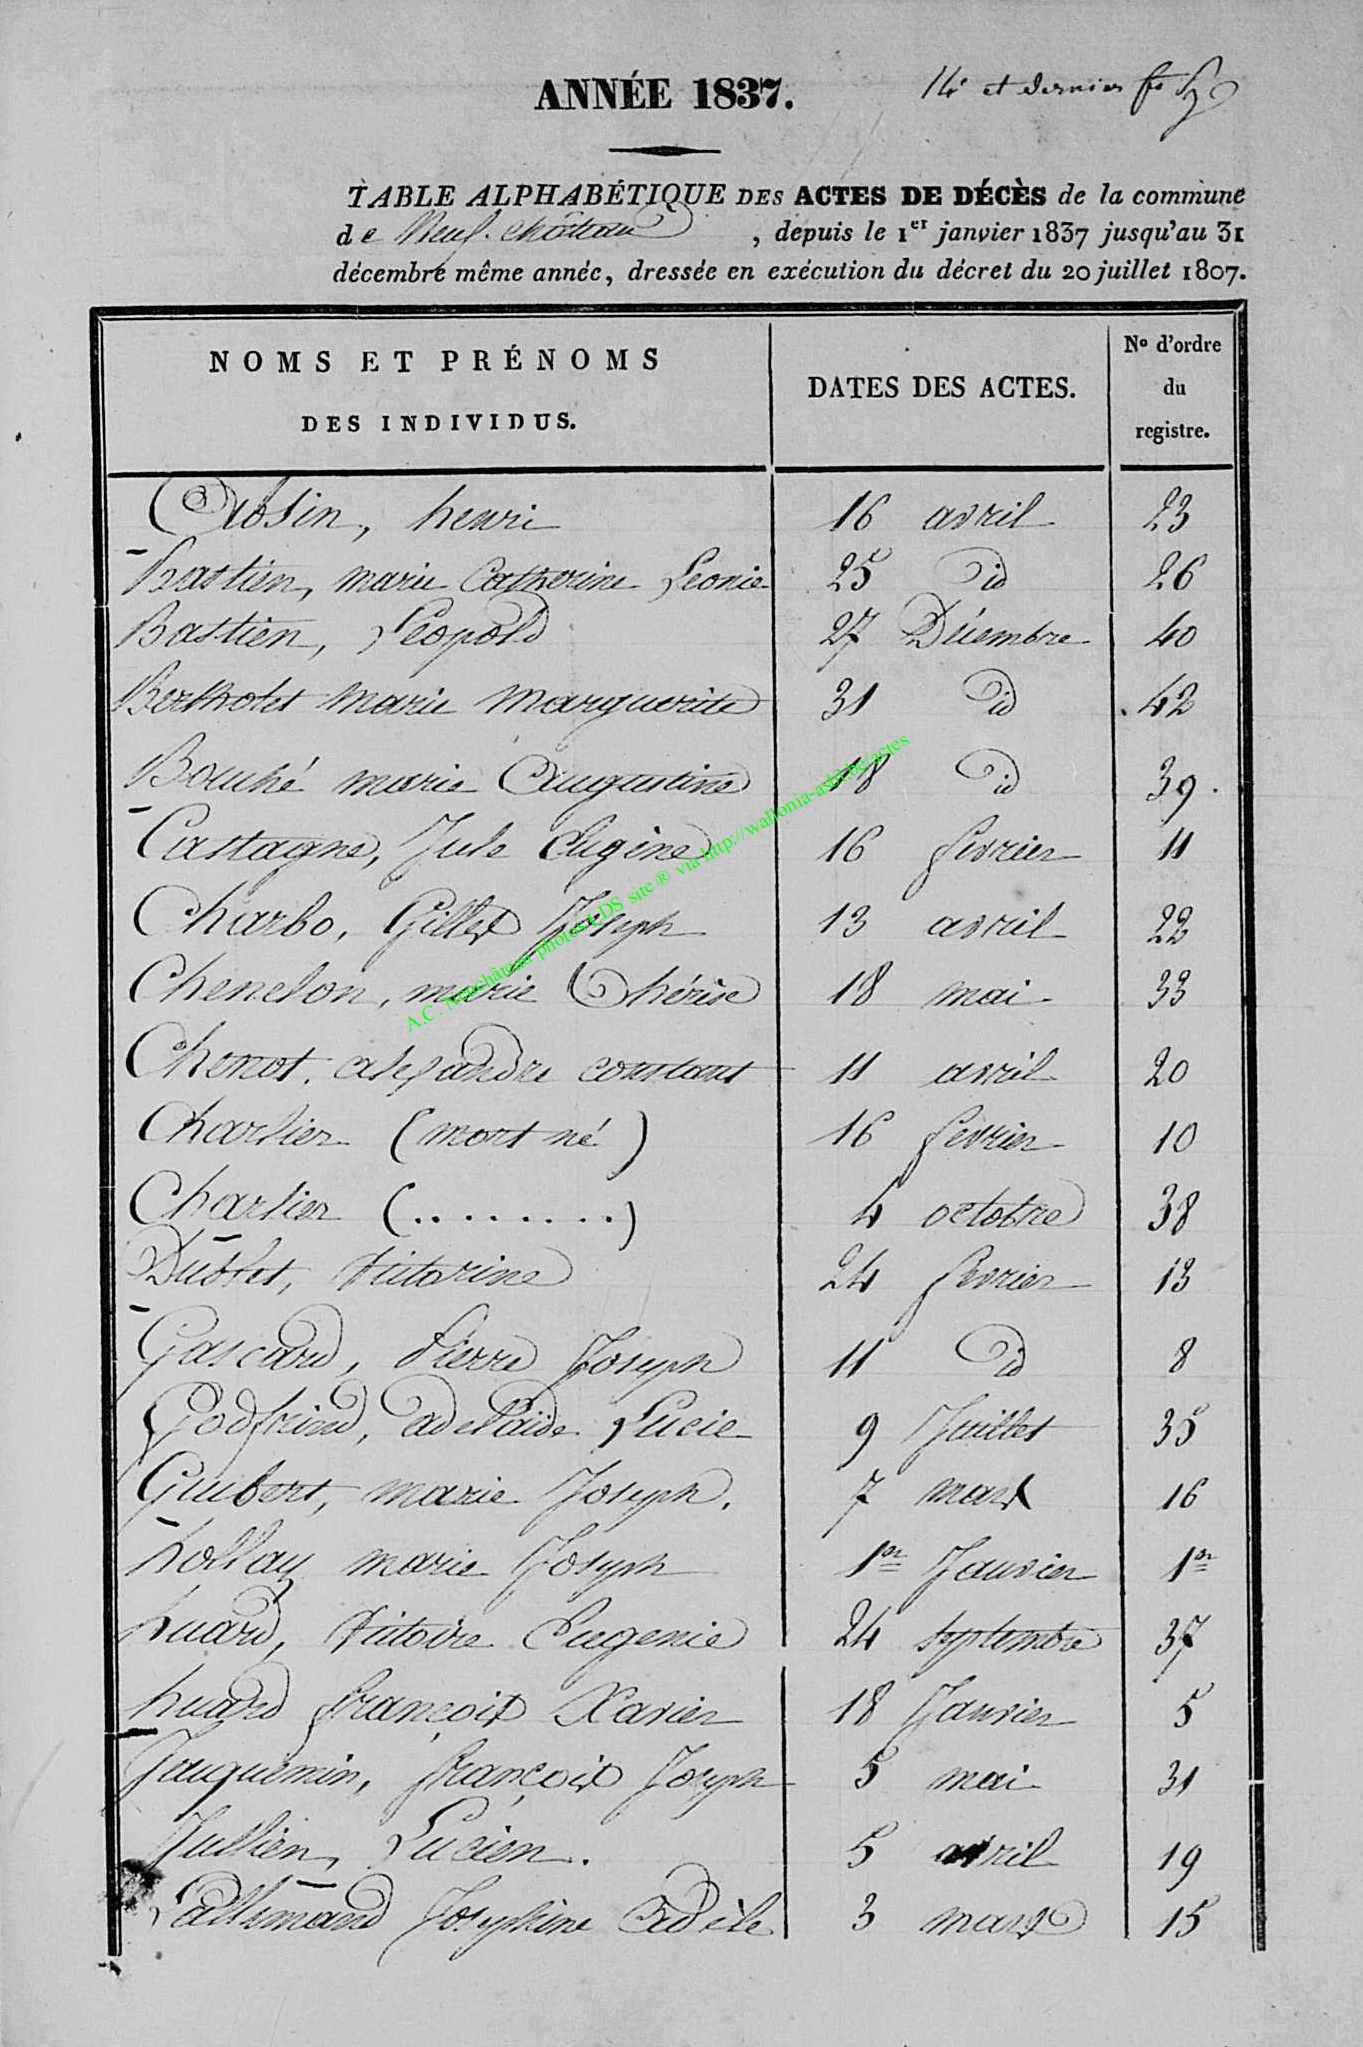 ANNÉE 1837.
14e et dernier
TABLE ALPHABÉTIQUE DES ACTES DE DÉCÈS de la commune
de Neuf-château, depuis le 1er janvier 1837 jusqu'au 31
décembre même année, dressée en exécution du décret du 20 juillet 1807.
NOMS ET PRÉNOMS DES INDIVIDUS. DATES DES ACTES. No d'ordre du registre.
henri 16 avril 23
Bastien, marie Catherine Leonie 25 id 26
Bastien, Léopold 27 Décembre 40
Bertholet marie marguerite 31 id 42
Bouché marie Augustine 18 id 39.
Castagne, Jule Eugène 16 fevrier 11
Charbo, Gilles Joseph 13 avril 22
Chenelon, marie Thérèse 18 mai 33
Chenot, alexandre constant 11 avril 20
Charlier (mort né) 16 fevrier 10
Charlier (.........) 4 octobre 38
Victorine 24 fevrier 13
Gascard, Pierre Joseph 11 id 8
Godfrind, adelaide Lucie 9 Juillet 35
Guibert, marie Joseph. 7 mars 16
hollay marie Joseph 1er Janvier 1er
huard, Victoire Eugenie 24 septembre 37
huard françois Xavier 18 Janvier 5
Jauquemin, françois Joseph 5 mai 31
Jullien, Lucien. 5 avril 19
Lallemand Josephine Adèle 3 mars 15
A.C. Neufchâteau photos LDS site ® via http://wallonia-asbl.be/actes